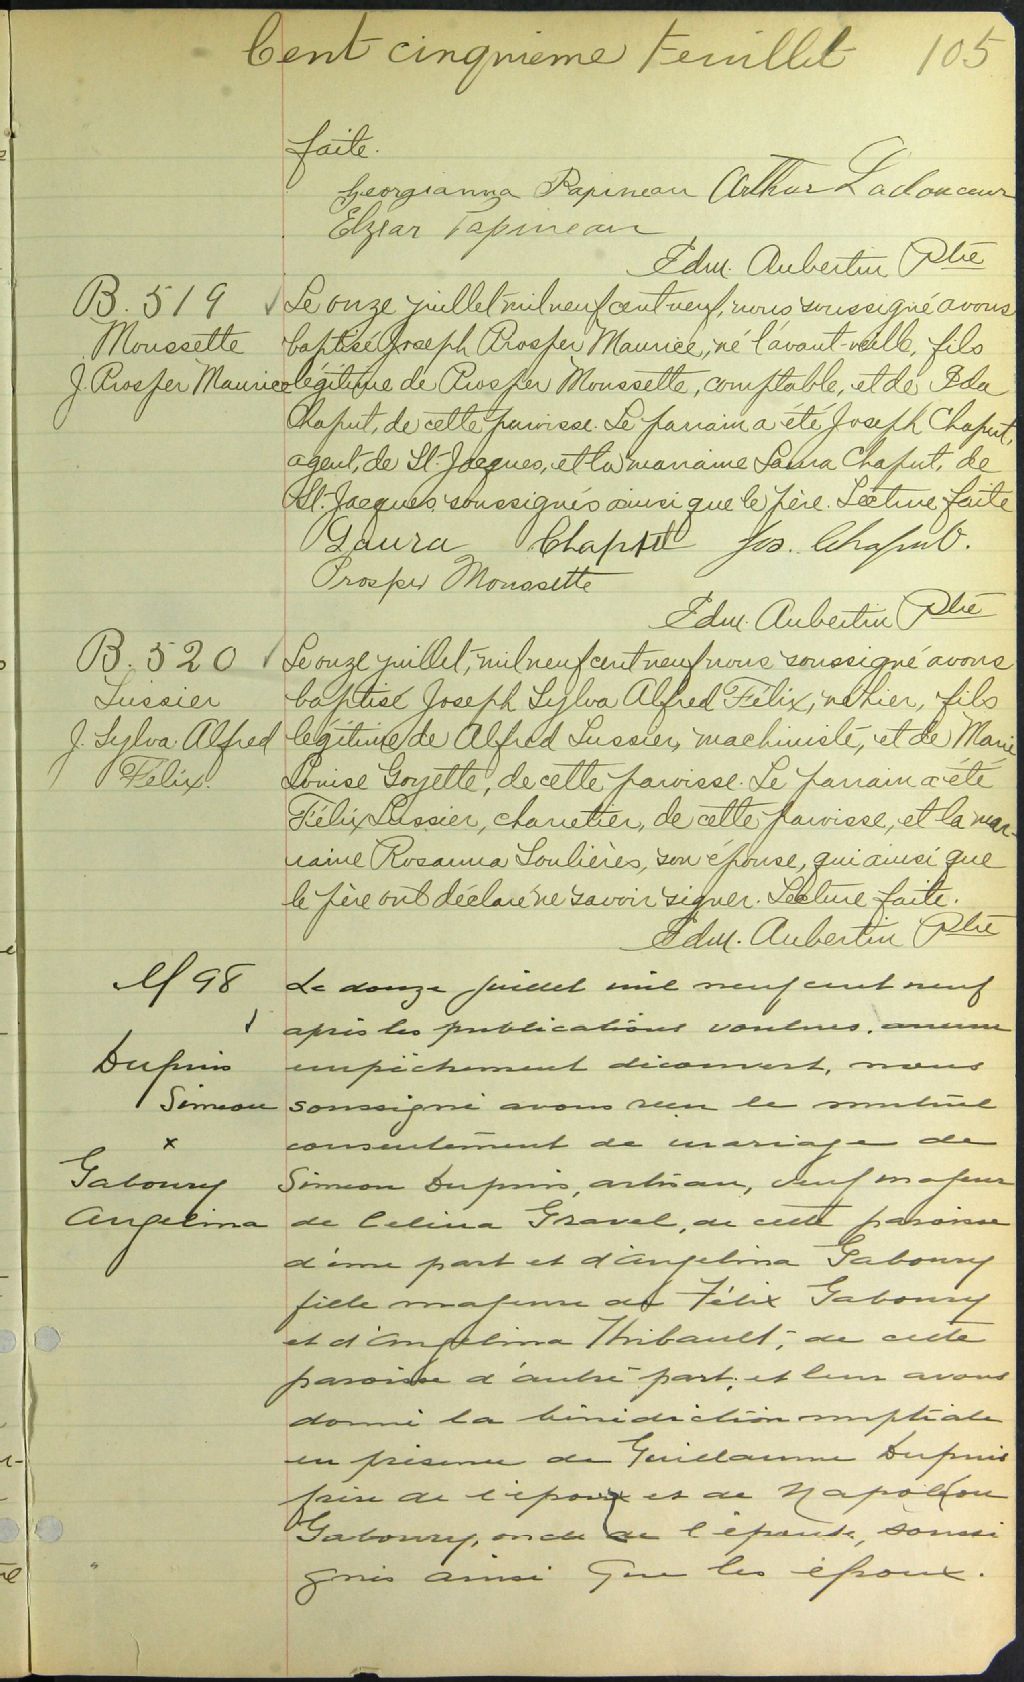 Cent cinquième Feuillet 105
faite.
Georgianna Papineau Arthur Ladouceur
Elzear Papineau
Edm. Aubertin Ptre
B. 519
Moussette
J. Prosper Maurice
Le onze juillet mil neuf cent neuf, nous soussigné avons
baptisé Joseph Prosper Maurice, né l'avant-veille, fils
légitime de Prosper Moussette, comptable, et de Ida
Chaput, de cette paroisse. Le parrain a été Joseph Chaput,
agent, de St. Jacques, et la marraine Laura Chaput, de
St. Jacques soussignés ainsi que le père. Lecture faite
Laura Chaput Jos. Chaput.
Prosper Moussette
Edm. Aubertin Ptre
B. 520
Lussier
J. Sylva Alfred
Félix.
Le onze juillet, mil neuf cent neuf nous soussigné avons
baptisé Joseph Sylva Alfred Félix, né hier, fils
légitime de Alfred Lussier, machiniste, et de Marie
Louise Goyette, de cette paroisse. Le parrain a été
Félix Lussier, charretier, de cette paroisse, et la mar-
raine Rosanna Soulières, son épouse, qui ainsi que
le père ont déclaré ne savoir signer. Lecture faite.
Edm. Aubertin Ptre
M 98
Dupuis
Simeon
x
Gaboury
Angelina
Le douze juillet mil neuf cent neuf
après les publications voulues, aucun
empêchement découvert, nous
soussigné avons reçu le mutuel
consentement de mariage de
Simeon Dupuis, artisan, veuf majeur
de Celina Gravel, de cette paroisse
d'une part et d'Angelina Gaboury
fille majeure de Félix Gaboury
et d'Angelina Thibault, de cette
paroisse d'autre part; et leur avons
donné la bénédiction nuptiale
en présence de Guillaume Dupuis
frère de l'époux et de Napoléon
Gaboury, oncle de l'épouse, soussi
gnés ainsi que les époux.